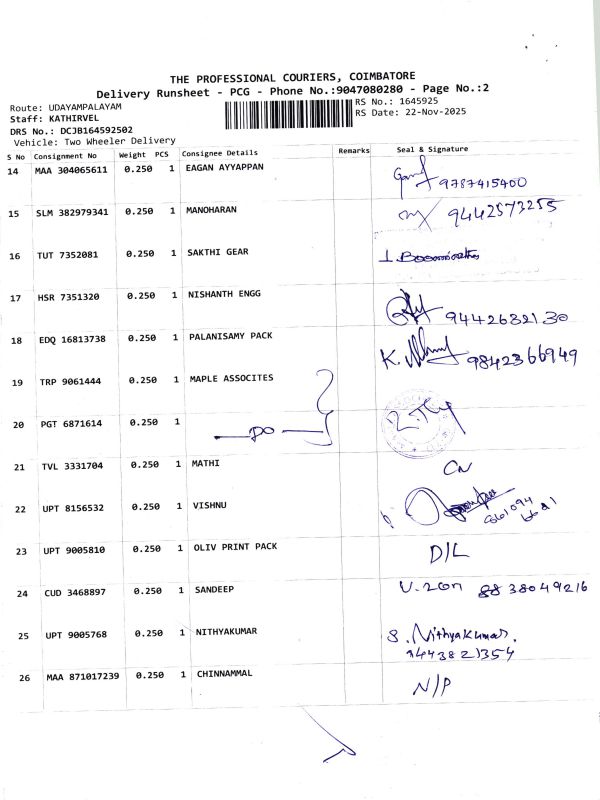 THE PROFESSIONAL COURIERS, COIMBATORE
Delivery Runsheet - PCG - Phone No.:9047080280 - Page No.:2
Route: UDAYAMPALAYAM RS No.: 1645925
Staff: KATHIRVEL RS Date: 22-Nov-2025
DRS No.: DCJB164592502
Vehicle: Two Wheeler Delivery
S No Consignment No Weight PCS Consignee Details Remarks Seal & Signature
14 MAA 304065611 0.250 1 EAGAN AYYAPPAN 9787415400
15 SLM 382979341 0.250 1 MANOHARAN 9442573255
16 TUT 7352081 0.250 1 SAKTHI GEAR
17 HSR 7351320 0.250 1 NISHANTH ENGG 9442632130
18 EDQ 16813738 0.250 1 PALANISAMY PACK K. 9842366949
19 TRP 9061444 0.250 1 MAPLE ASSOCITES
20 PGT 6871614 0.250 1 DO
21 TVL 3331704 0.250 1 MATHI CN
22 UPT 8156532 0.250 1 VISHNU
23 UPT 9005810 0.250 1 OLIV PRINT PACK D/L
24 CUD 3468897 0.250 1 SANDEEP 8838049216
25 UPT 9005768 0.250 1 NITHYAKUMAR S. Nithyakumar.
9443821354
26 MAA 871017239 0.250 1 CHINNAMMAL N/P